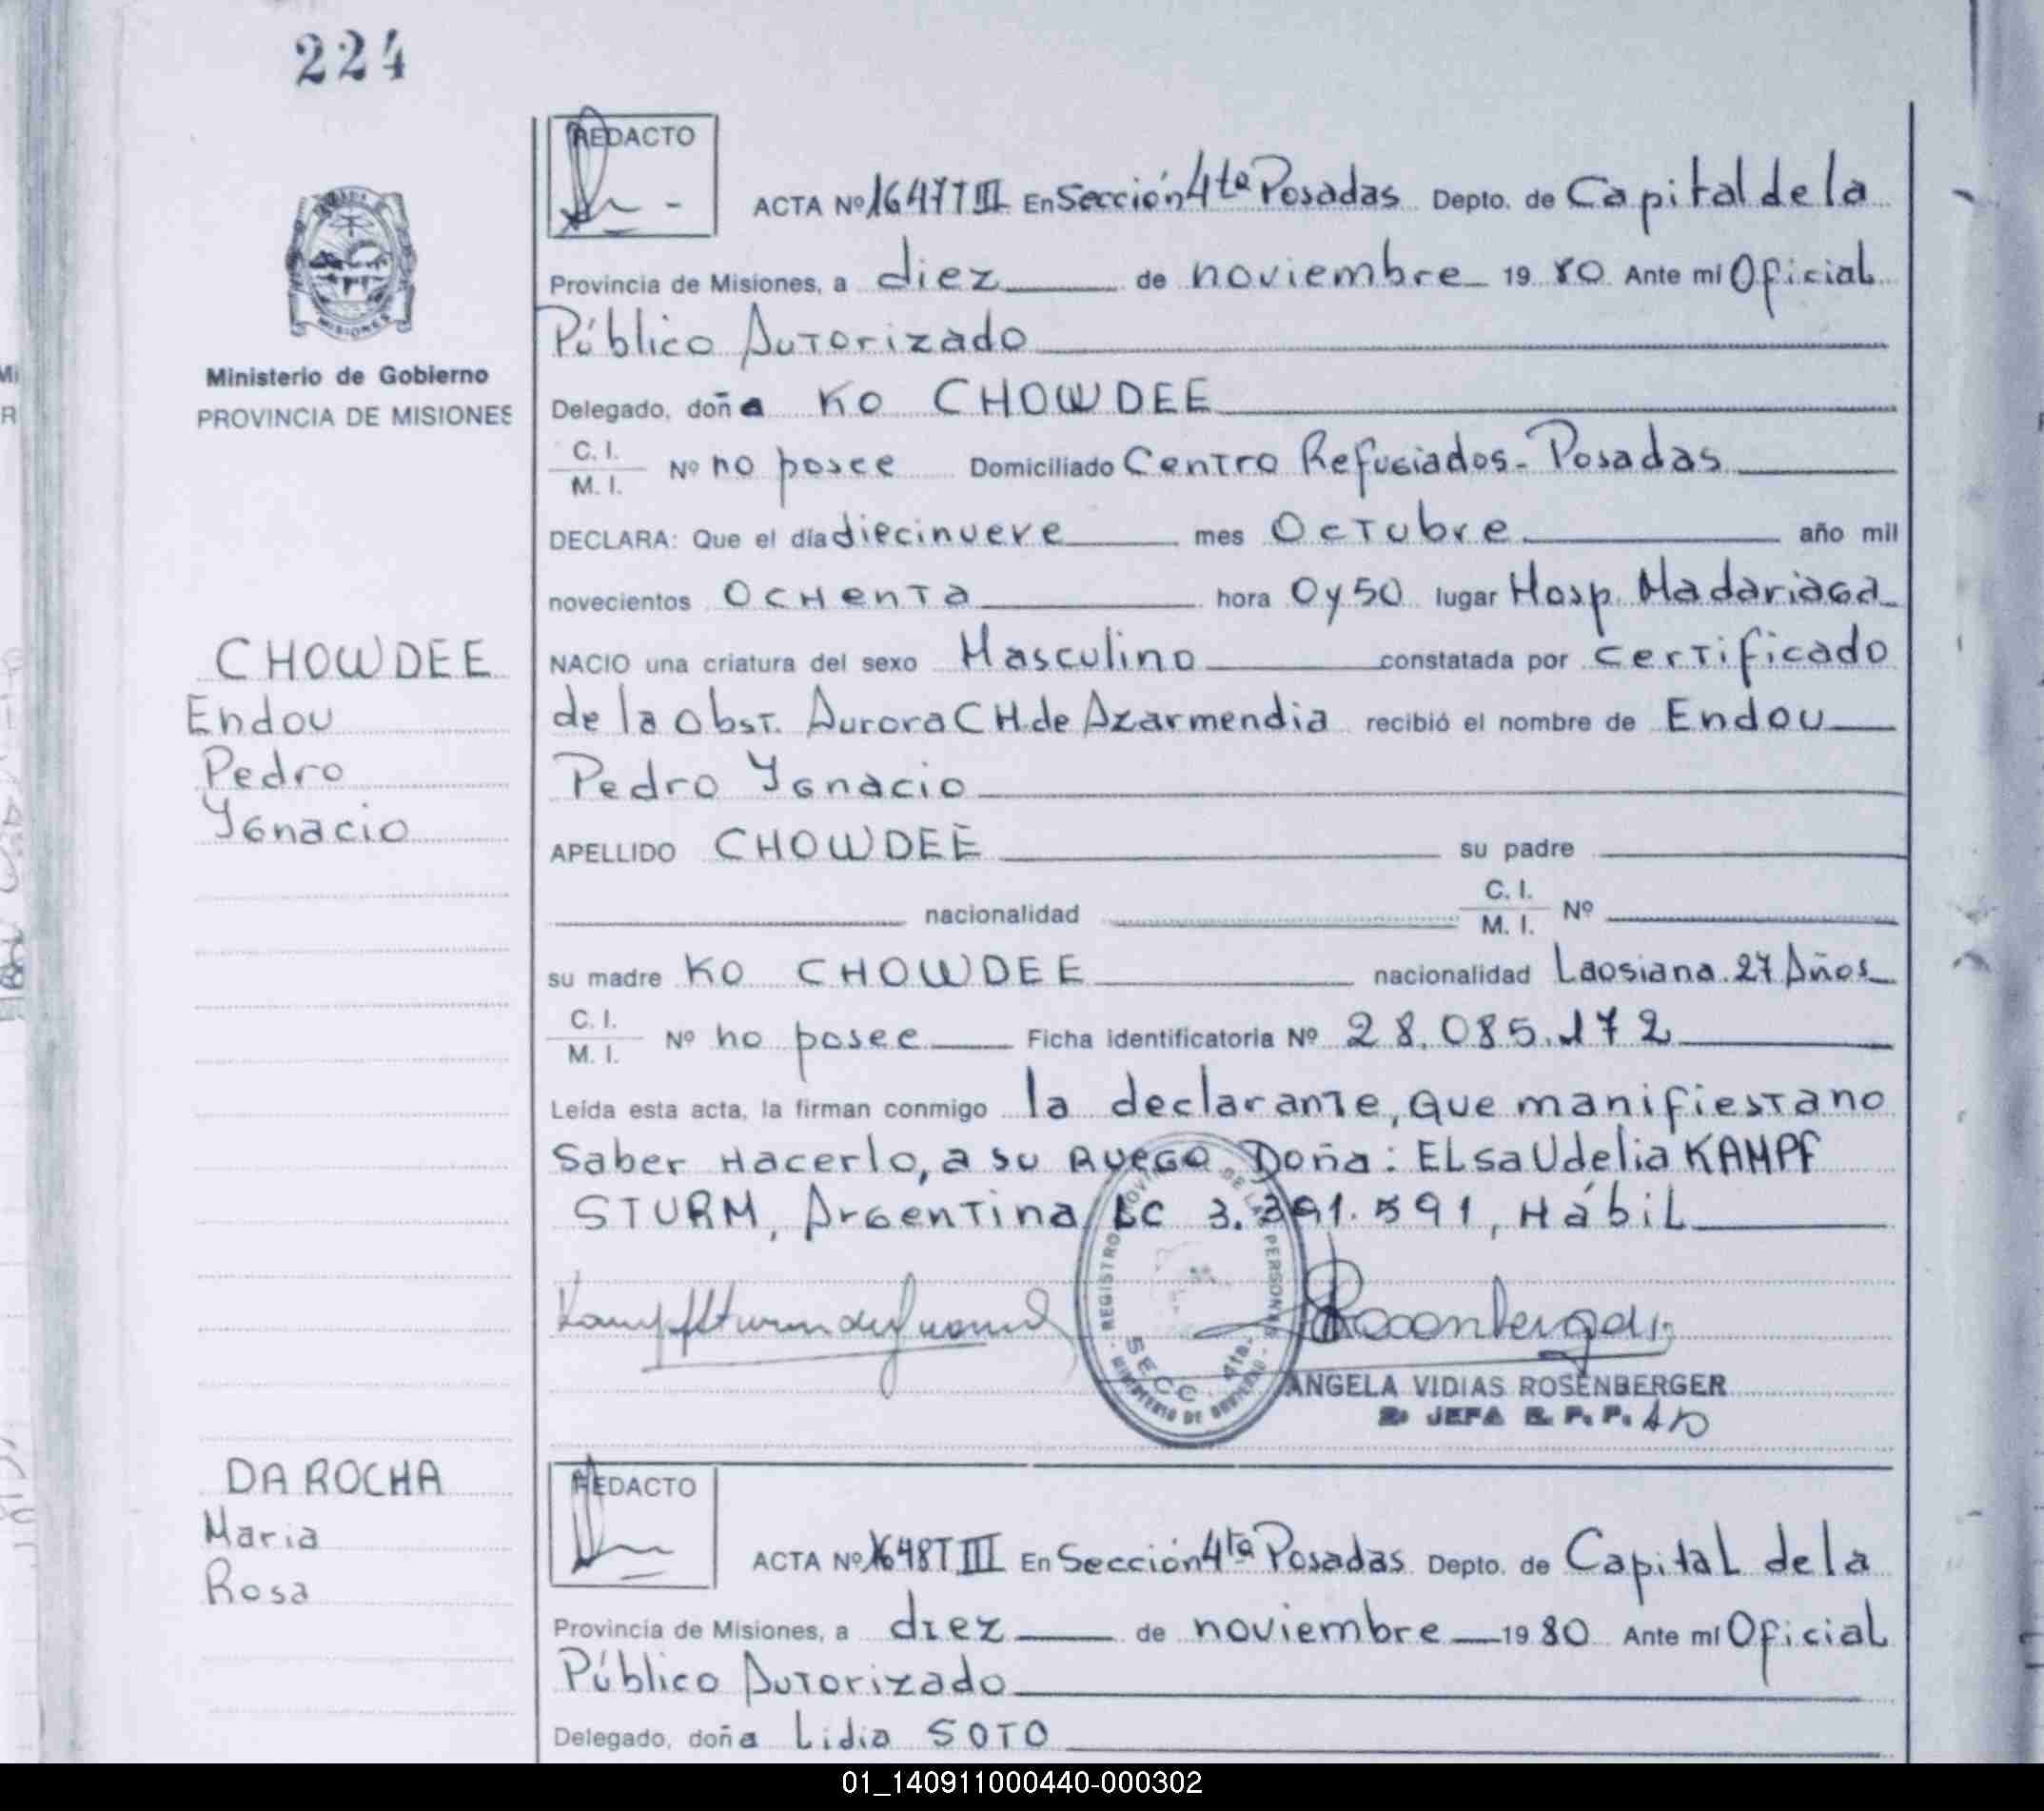 224
REDACTO
ACTA Nº 1647 T III En Sección 4ta Posadas Depto. de Capital de la
Provincia de Misiones, a diez de noviembre 1980 Ante mí Oficial
Público Autorizado
Ministerio de Gobierno
PROVINCIA DE MISIONES
Delegado, doña KO CHOWDEE
C. I.
M. I.
Nº no posee Domiciliado Centro Refugiados - Posadas
DECLARA: Que el día diecinueve mes Octubre año mil
novecientos Ochenta hora 0 y 50 lugar Hosp. Madariaga
CHOWDEE
Endou
Pedro
Ygnacio
NACIO una criatura del sexo Masculino constatada por certificado
de la Obst. Aurora CH. de Azarmendia recibió el nombre de Endou
Pedro Ygnacio
APELLIDO CHOWDEE su padre
nacionalidad C. I.
M. I. Nº
su madre KO CHOWDEE nacionalidad Laosiana 27 Años
C. I.
M. I.
Nº no posee Ficha identificatoria Nº 28.085.172
Leída esta acta, la firman conmigo la declarante, que manifiesta no
Saber Hacerlo, a su Ruego Doña: ELsa Udelia KAMPF
STURM, Argentina LC 3.391.591, HábiL
REGISTRO PROVINCIAL DE LAS PERSONAS
SECC. 4ta.
MINISTERIO DE GOBIERNO
ANGELA VIDIAS ROSENBERGER
JEFA R. P. P.
DA ROCHA
Maria
Rosa
REDACTO
ACTA Nº 1648 T III En Sección 4ta Posadas Depto. de CapitaL de la
Provincia de Misiones, a diez de noviembre 1980 Ante mí Oficial
Público Autorizado
Delegado, doña Lidia SOTO
01_140911000440-000302